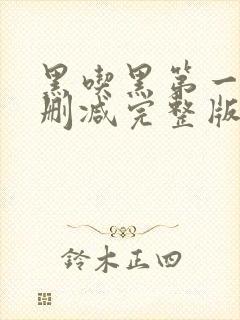 黑喫黑第一
删减完整版
鈴木正四